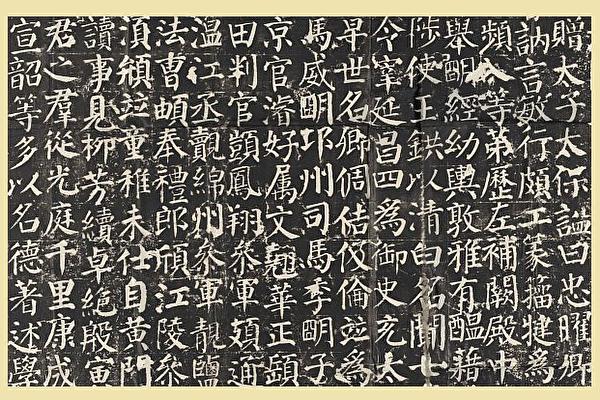 贈太子太保諡曰忠曜卿
訥言敏行頗工篆籀犍為
頻入等第歷左補闕殿中
舉明經幼輿敦雅有醞藉
陟使王鉷以清白名聞七
令宰延昌四為御史充太
早世名卿倜佶伉倫並為
馬威明邛州司馬季明子
京官濬好屬文翹華正頤
田判官顗鳳翔參軍頍通
温江丞覿綿州參軍靚鹽
法曹頔奉禮郎頎江陵參
須並童稚未仕自黃門
讀事見柳芳續卓絕殷寅
君之羣從光庭千里康成
宣韶等多以名德著述學